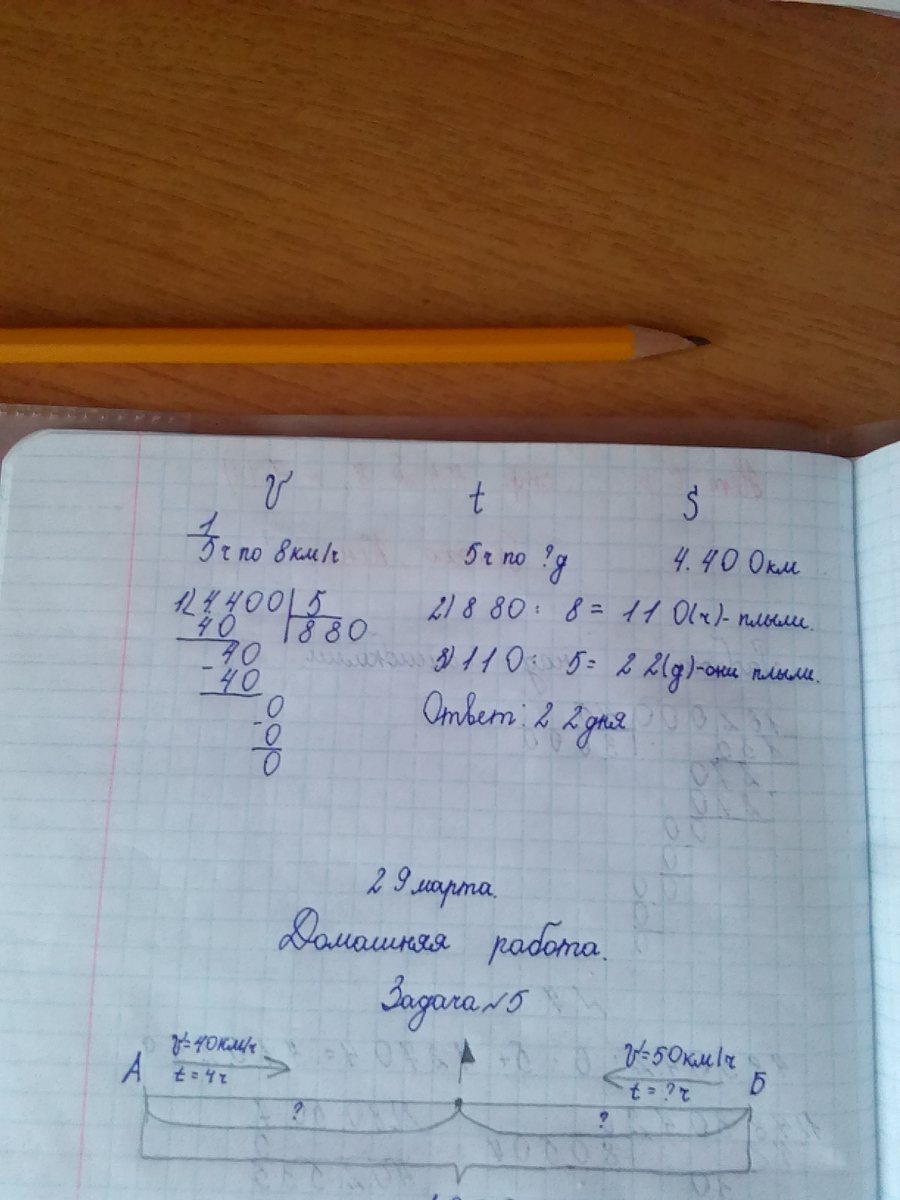 V t S
1
5ч по 8км/ч 5ч по ?д 4.400км
1) 4400 5 2) 880 : 8 = 110(ч)-плыли.
40 880
40 3) 110 : 5 = 22(д)-они плыли.
- 40
0 Ответ: 22дня
- 0
0
29 марта.
Домашняя работа.
Задача №5
V=40км/ч V=50км/ч
А t=4ч t=?ч Б
? ?